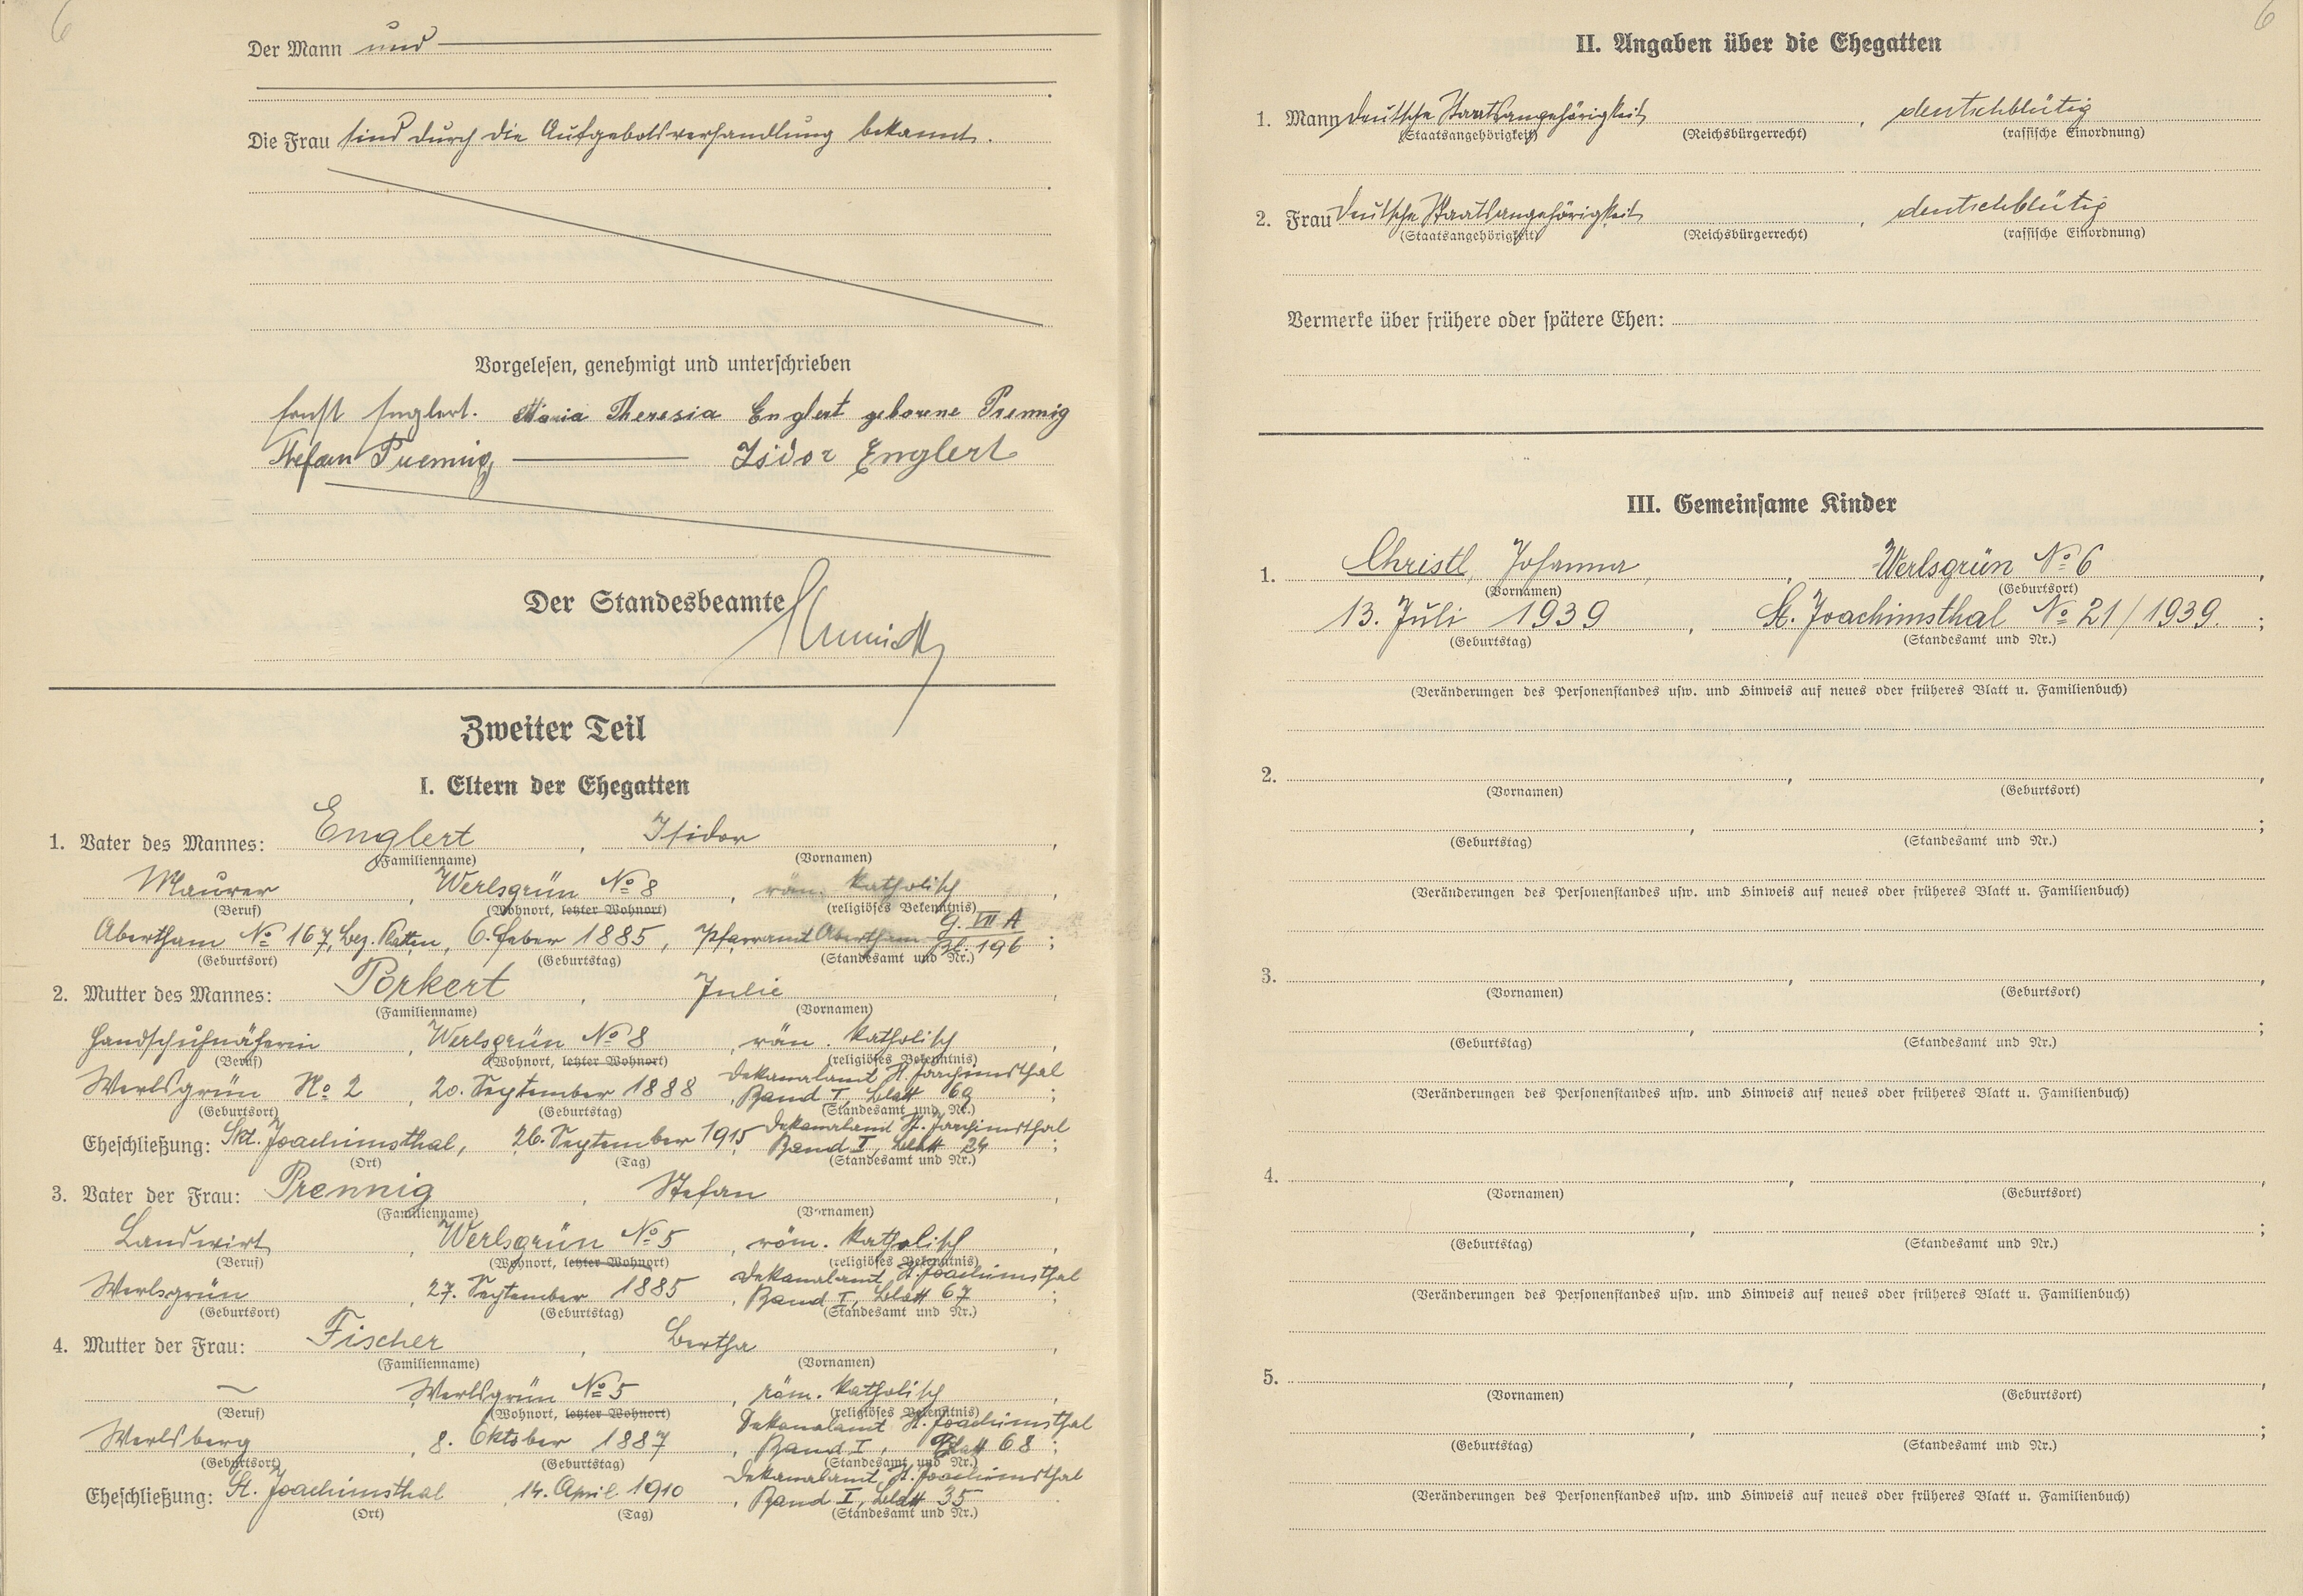 6
Der Mann und
Die Frau sind durch die Aufgebotsverhandlung bekannt.
Vorgelesen, genehmigt und unterschrieben
Ernst Englert. Maria Theresia Englert geborene Prennig
Stefan Prennig Isidor Englert
Der Standesbeamte
Zweiter Teil
I. Eltern der Ehegatten
1. Vater des Mannes: Englert, Isidor,
(Familienname) (Vornamen)
Maurer, Werlsgrün No 8, röm. katholisch,
(Beruf) (Wohnort, letzter Wohnort) (religiöses Bekenntnis)
Abertham No 167, Bez. Platten, 6. Feber 1885, Pfarramt Abertham G. VII A Bl. 196;
(Geburtsort) (Geburtstag) (Standesamt und Nr.)
2. Mutter des Mannes: Porkert, Julie,
(Familienname) (Vornamen)
Handschuhnäherin, Werlsgrün No 8, röm. katholisch,
(Beruf) (Wohnort, letzter Wohnort) (religiöses Bekenntnis)
Werlsgrün No 2, 20. September 1888, Dekanalamt St. Joachimsthal Band I, Blatt 69;
(Geburtsort) (Geburtstag) (Standesamt und Nr.)
Eheschließung: Skt. Joachimsthal, 26. September 1915 Dekanalamt St. Joachimsthal Band I, Blatt 24;
(Ort) (Tag) (Standesamt und Nr.)
3. Vater der Frau: Prennig, Stefan,
(Familienname) (Vornamen)
Landwirt, Werlsgrün No 5, röm. katholisch,
(Beruf) (Wohnort, letzter Wohnort) (religiöses Bekenntnis)
Werlsgrün, 27. September 1885, Dekanalamt St. Joachimsthal Band I, Blatt 67;
(Geburtsort) (Geburtstag) (Standesamt und Nr.)
4. Mutter der Frau: Fischer, Bertha,
(Familienname) (Vornamen)
— Werlsgrün No 5, röm. katholisch,
(Beruf) (Wohnort, letzter Wohnort) (religiöses Bekenntnis)
Werlsberg, 8. Oktober 1887, Dekanalamt St. Joachimsthal Band I, Blatt 68;
(Geburtsort) (Geburtstag) (Standesamt und Nr.)
Eheschließung: St. Joachimsthal, 14. April 1910, Dekanalamt St. Joachimsthal Band I, Blatt 35
(Ort) (Tag) (Standesamt und Nr.)
6
II. Angaben über die Ehegatten
1. Mann deutsche Staatsangehörigkeit, deutschblütig
(Staatsangehörigkeit) (Reichsbürgerrecht) (rassische Einordnung)
2. Frau deutsche Staatsangehörigkeit, deutschblütig
(Staatsangehörigkeit) (Reichsbürgerrecht) (rassische Einordnung)
Vermerke über frühere oder spätere Ehen:
III. Gemeinsame Kinder
1. Christl, Johanna, Werlsgrün No 6,
(Vornamen) (Geburtsort)
13. Juli 1939, St. Joachimsthal No 21/1939.;
(Geburtstag) (Standesamt und Nr.)
(Veränderungen des Personenstandes usw. und Hinweis auf neues oder früheres Blatt u. Familienbuch)
2. , ,
(Vornamen) (Geburtsort)
, ;
(Geburtstag) (Standesamt und Nr.)
(Veränderungen des Personenstandes usw. und Hinweis auf neues oder früheres Blatt u. Familienbuch)
3. , ,
(Vornamen) (Geburtsort)
, ;
(Geburtstag) (Standesamt und Nr.)
(Veränderungen des Personenstandes usw. und Hinweis auf neues oder früheres Blatt u. Familienbuch)
4. , ,
(Vornamen) (Geburtsort)
, ;
(Geburtstag) (Standesamt und Nr.)
(Veränderungen des Personenstandes usw. und Hinweis auf neues oder früheres Blatt u. Familienbuch)
5. , ,
(Vornamen) (Geburtsort)
, ;
(Geburtstag) (Standesamt und Nr.)
(Veränderungen des Personenstandes usw. und Hinweis auf neues oder früheres Blatt u. Familienbuch)